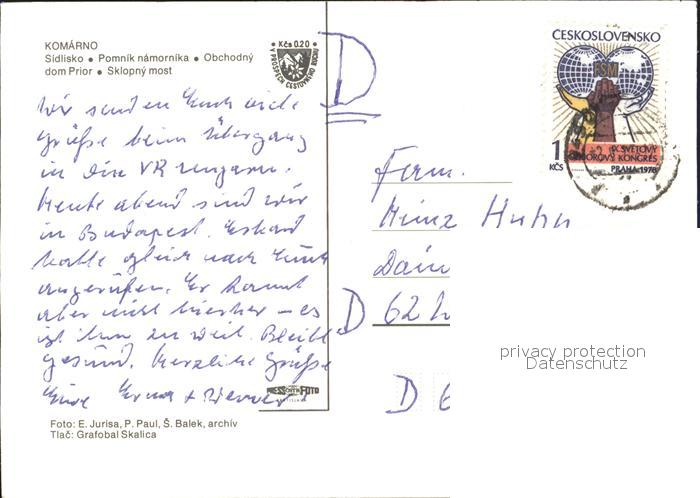 KOMÁRNO
Sídlisko • Pomník námorníka • Obchodný
dom Prior • Sklopný most
Kčs 0.20
V PROSPECH CESTOVNÉHO RUCHU
D
ČESKOSLOVENSKO
FSM
1 KČS
IX. SVĚTOVÝ
ODBOROVÝ KONGRES
PRAHA 1978
Wir senden Euch viele
Grüße beim Übergang
in die VR Ungarn.
Heute abend sind wir
in Budapest.
hatte gleich nach
angerufen. Er kommt
aber nicht hierher – es
ist ihm zu weit. Bleibt
gesund. Herzliche Grüße
Eure Erna + Werner
Fam.
Heinz Huhn
D 62
D 6
privacy protection
Datenschutz
PRESSFOTO
Foto: E. Jurisa, P. Paul, Š. Balek, archív
Tlač: Grafobal Skalica